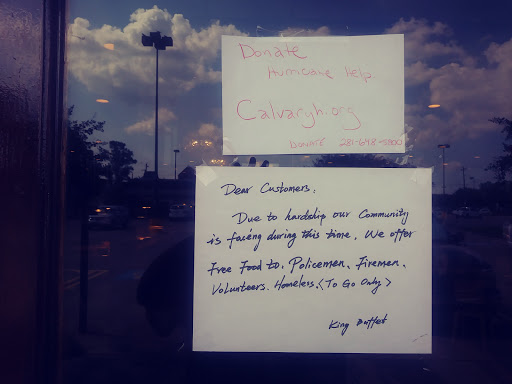 Donate
Hurricane Help
Calvaryh.org
DONATE 281-648-5800
Dear Customers,
Due to hardship our Community
is facing during this time, We offer
Free Food to, Policemen, Firemen,
Volunteers, Homeless, <To Go Only>
King Buffet